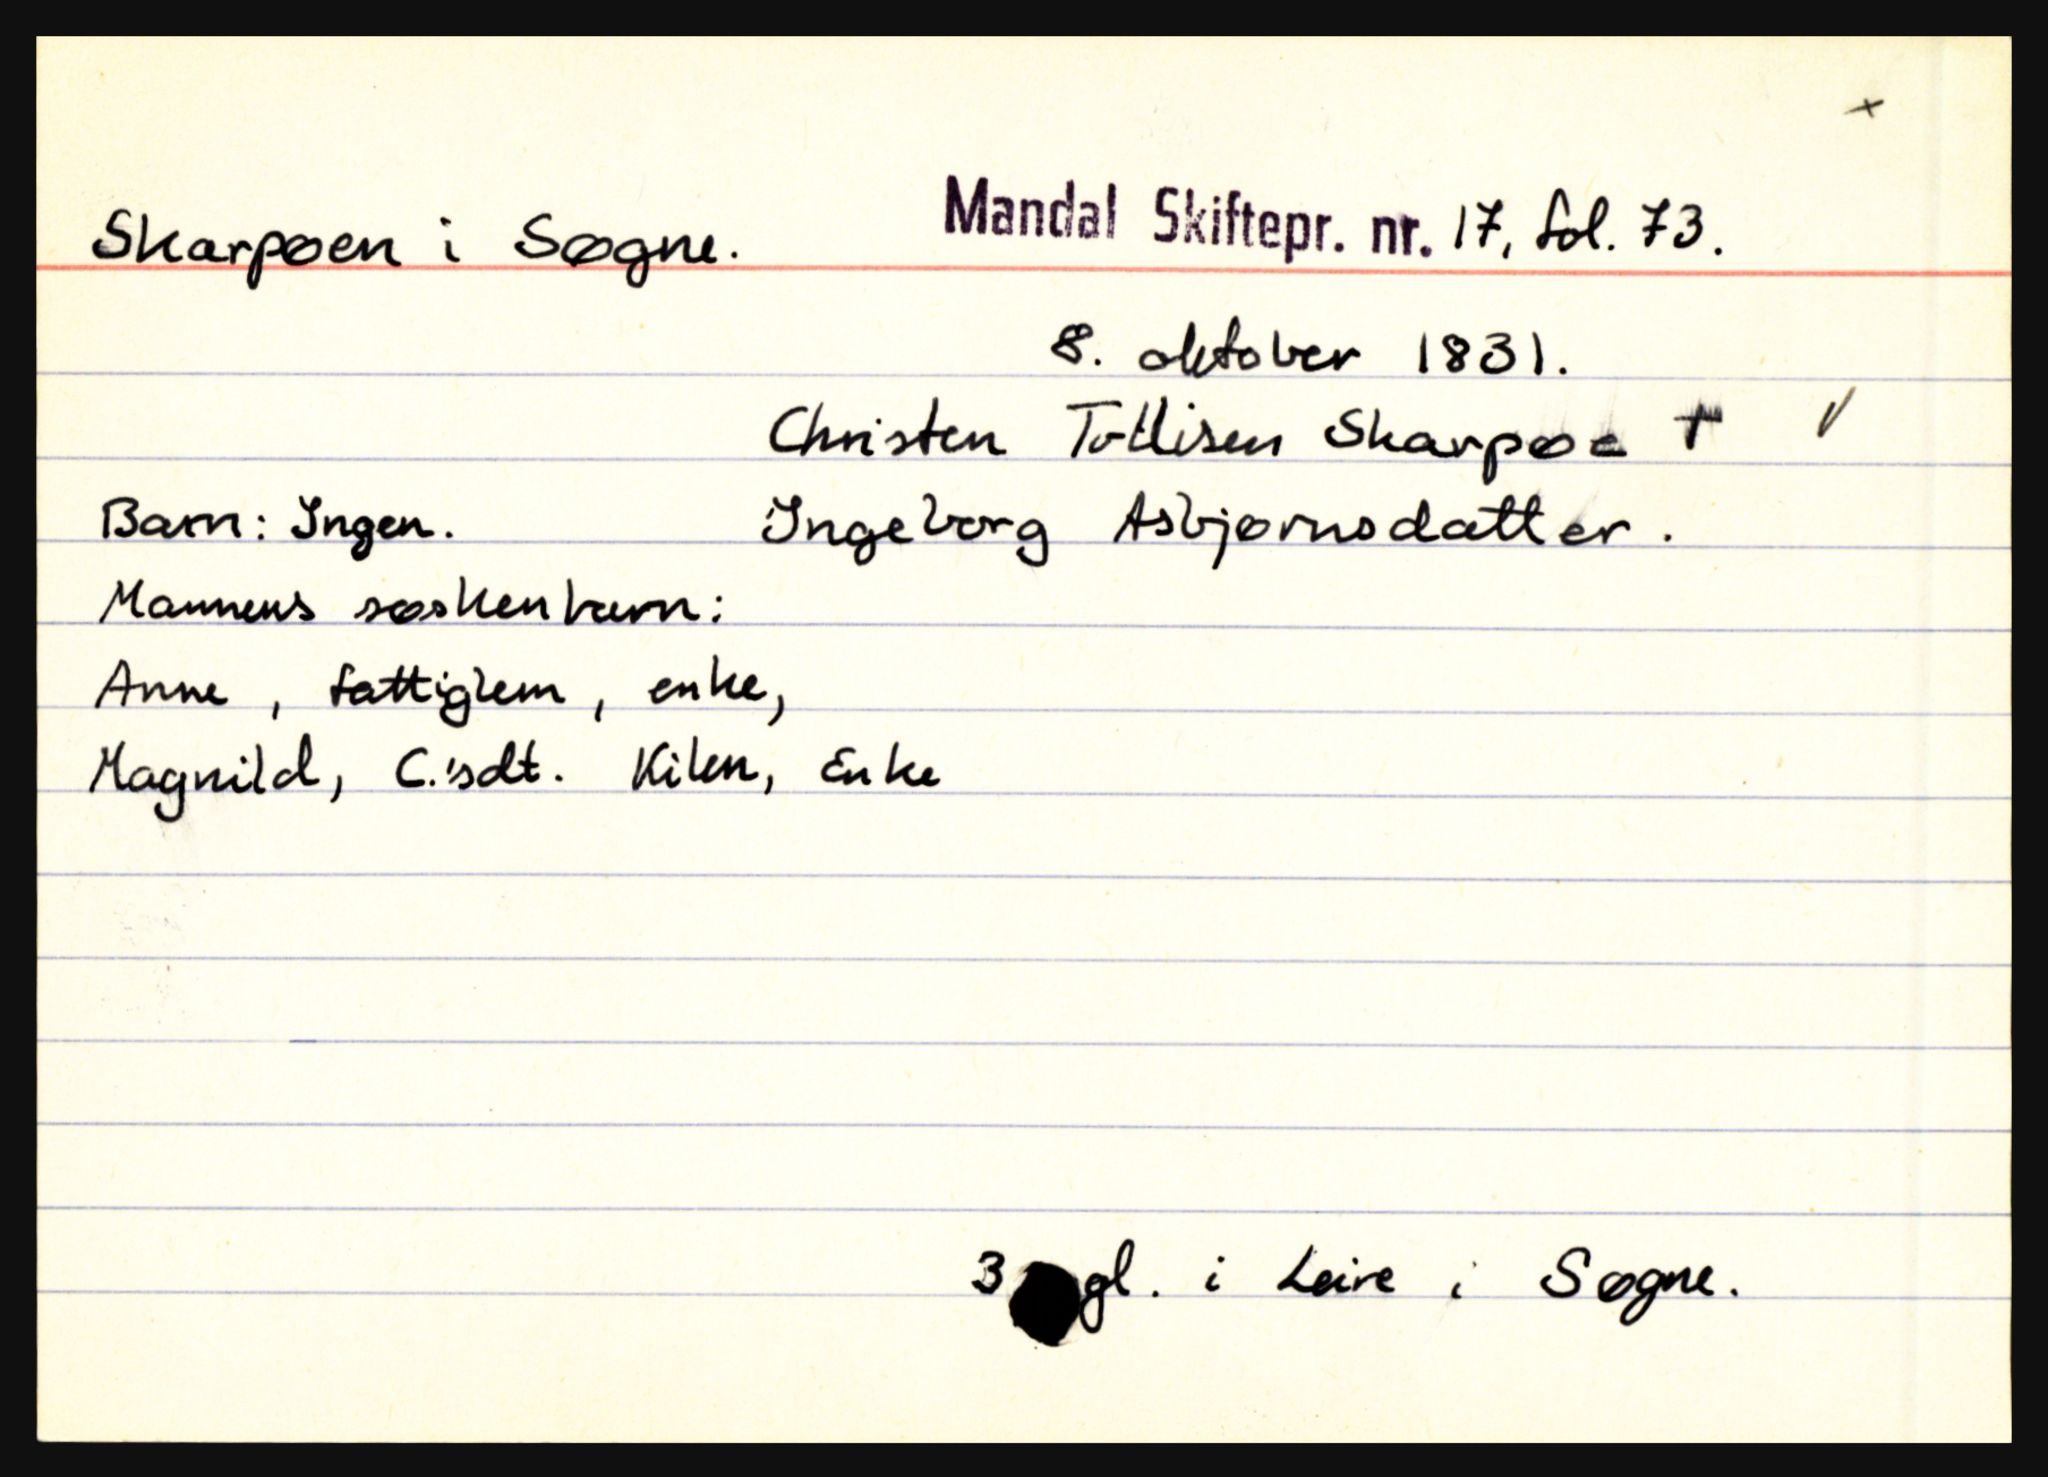 Skarpøen i Søgne. Mandal Skiftepr. nr. 17, fol. 73.
8. oktober 1831.
Christen Tollisen Skarpøe †
Barn: Ingen. Ingeborg Asbjørnsdatter.
Mannens søskenbarn:
Anne, fattiglem, enke,
Magnild, C.'sdt. Kilen, Enke
3 gl. i Leire i Søgne.